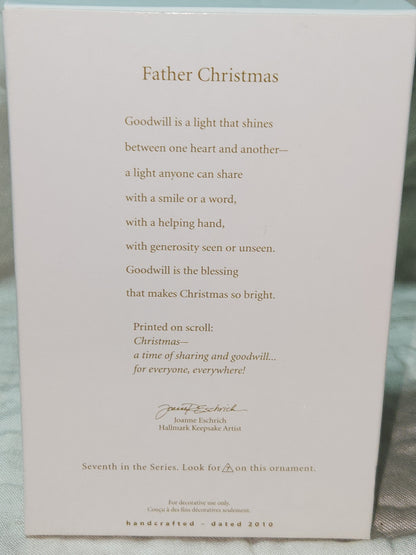 Father Christmas
Goodwill is a light that shines
between one heart and another—
a light anyone can share
with a smile or a word,
with a helping hand,
with generosity seen or unseen.
Goodwill is the blessing
that makes Christmas so bright.
Printed on scroll:
Christmas—
a time of sharing and goodwill...
for everyone, everywhere!
Joanne Eschrich
Joanne Eschrich
Hallmark Keepsake Artist
Seventh in the Series. Look for 7 on this ornament.
For decorative use only.
Conçu à des fins décoratives seulement.
handcrafted - dated 2010